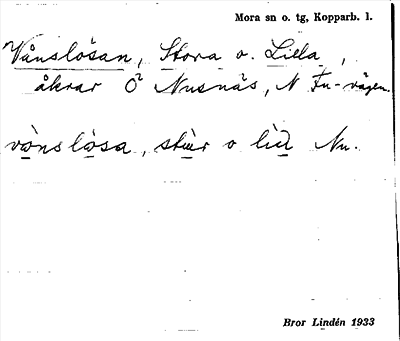 Mora sn o. tg, Kopparb. l.
Vånslösan, Stora o. Lilla,
åkrar Ö Nusnäs, N Fu-vägen.
vònslòsa, stùr o lìd Nu.
Bror Lindén 1933